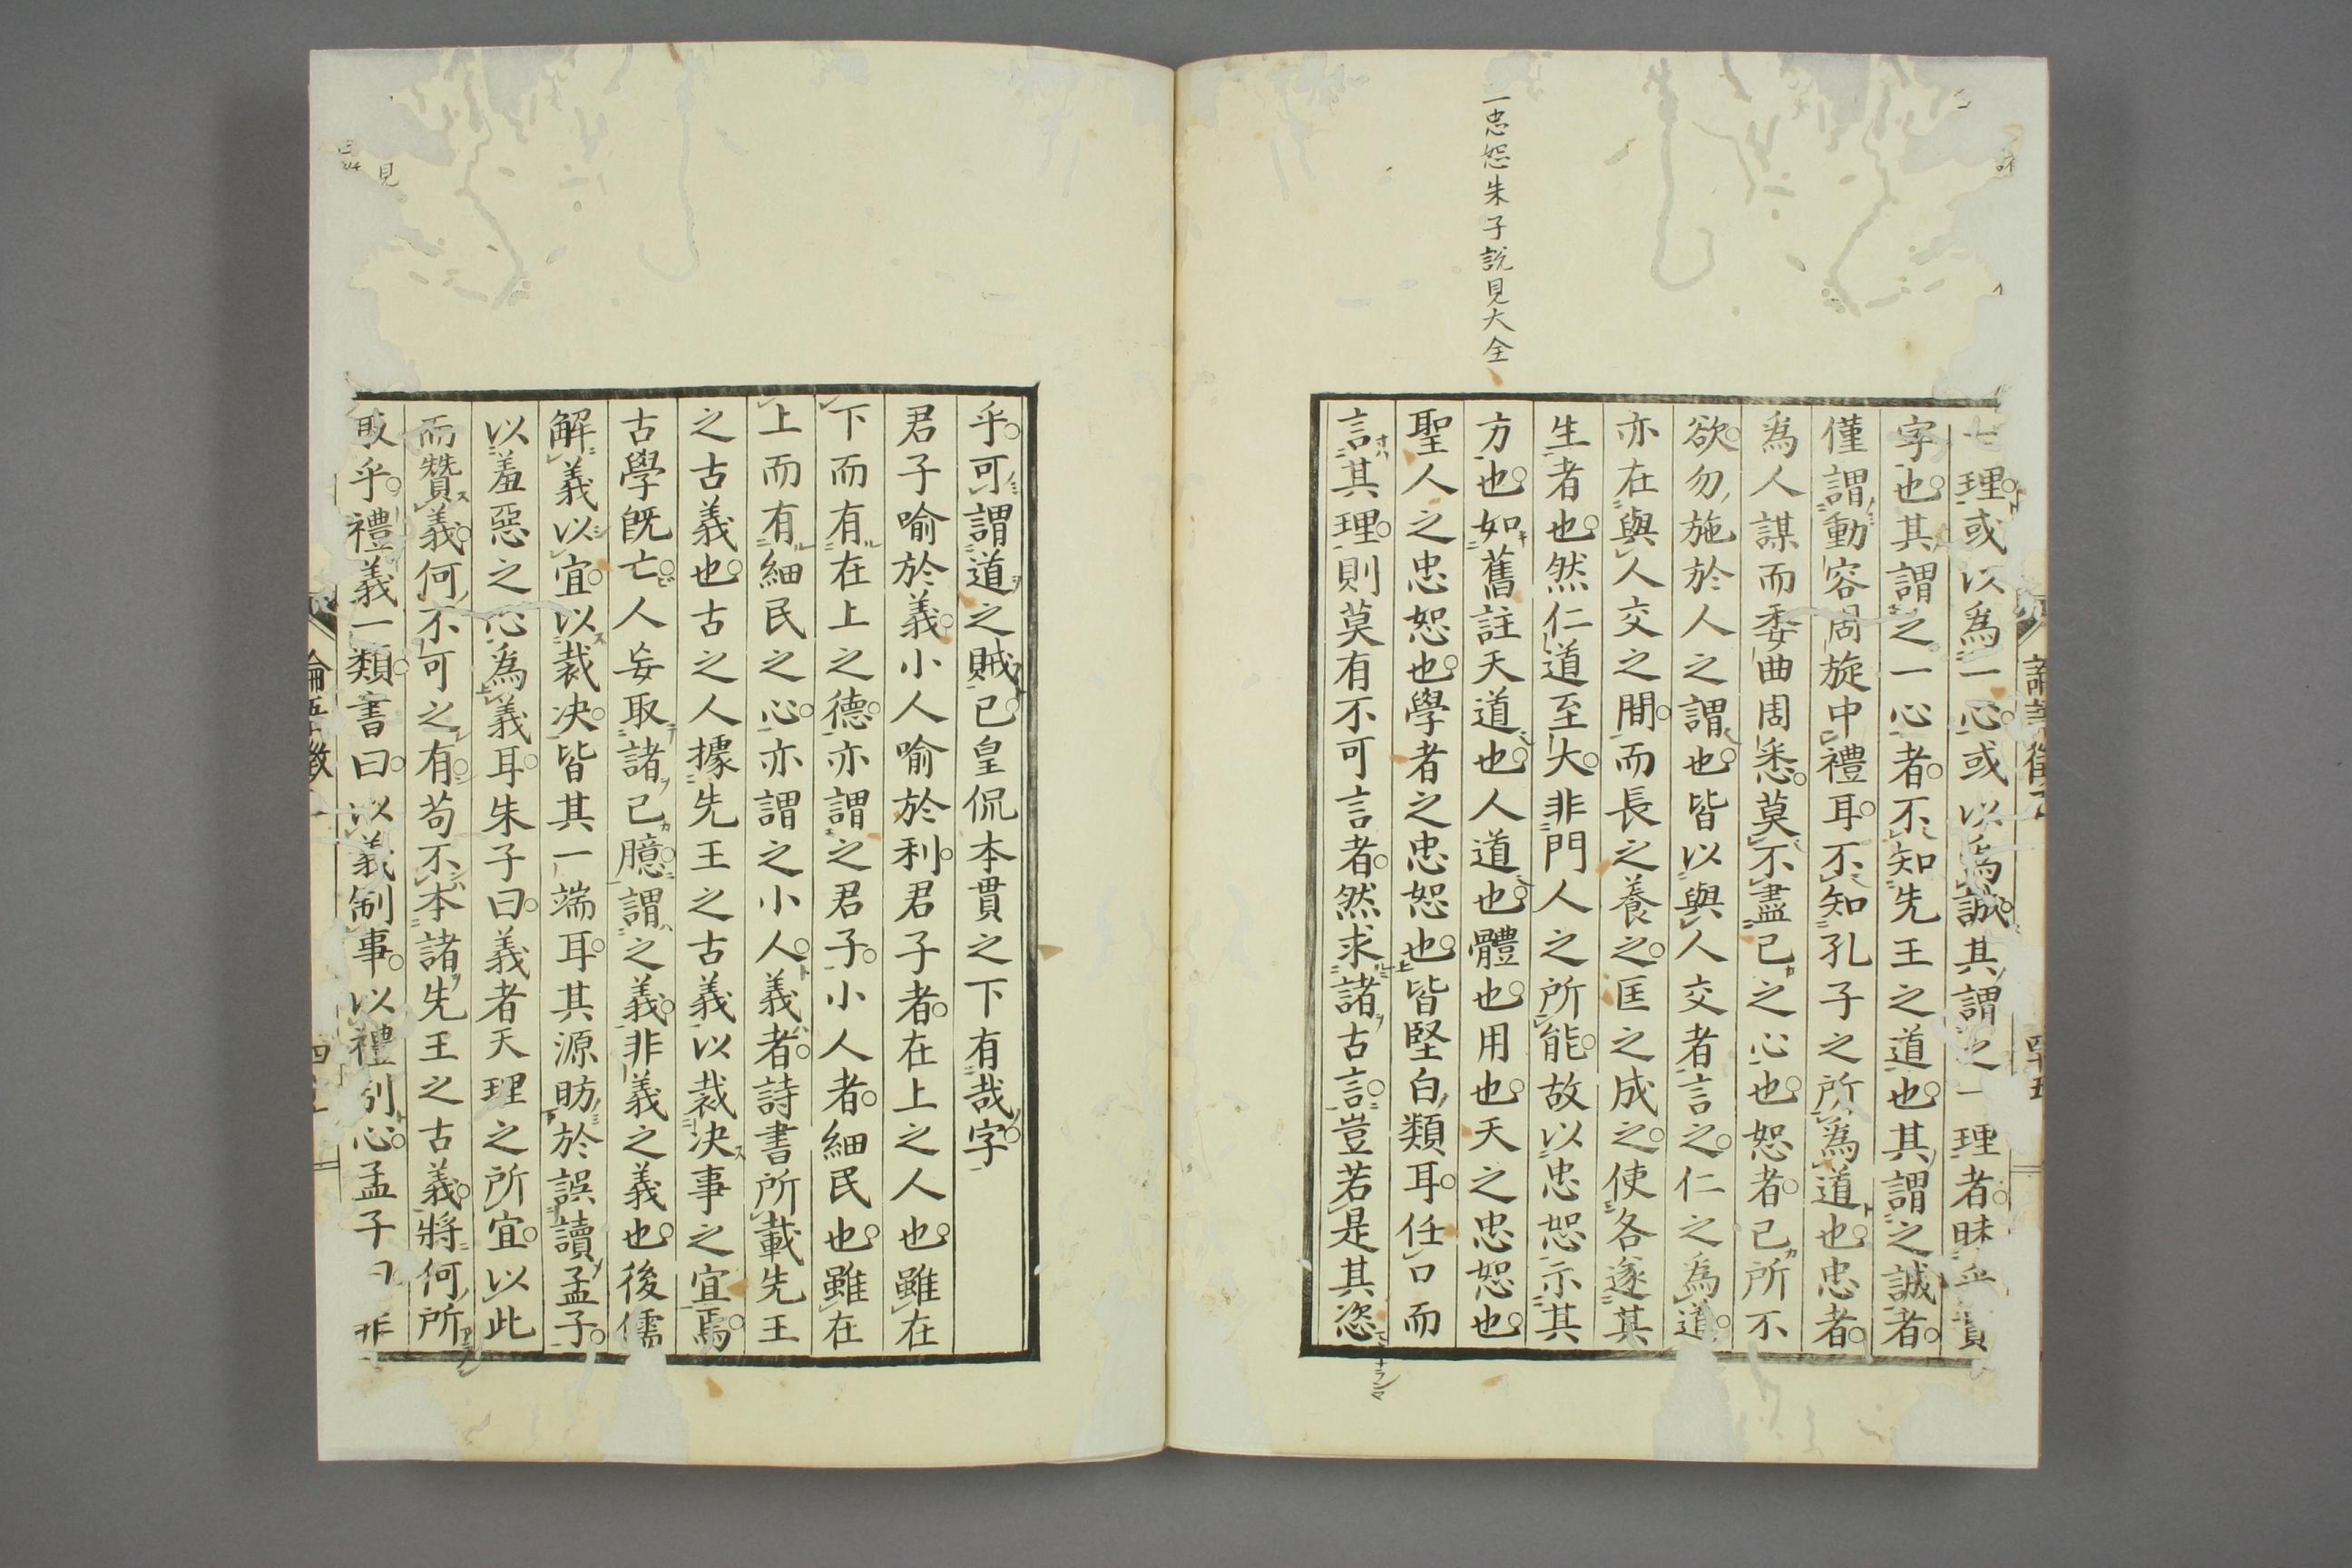 一忠恕朱子說見大全
理或以爲一心或以爲誠其謂之一理者昧乎貫
字也其謂之一心者不知先王之道也其謂之誠者
僅謂動容周旋中禮耳不知孔子之所爲道也忠者
爲人謀而委曲周悉莫不盡己之心也恕者己所不
欲勿施於人之謂也皆以與人交者言之仁之爲道
亦在與人交之間而長之養之匡之成之使各遂其
生者也然仁道至大非門人之所能故以忠恕示其
方也如舊註天道也人道也體也用也天之忠恕也
聖人之忠恕也學者之忠恕也皆堅白類耳任口而
言其理則莫有不可言者然求諸古言豈若是其恣
乎可謂道之賊已皇侃本貫之下有哉字
君子喻於義小人喻於利君子者在上之人也雖在
下而有在上之德亦謂之君子小人者細民也雖在
上而有細民之心亦謂之小人義者詩書所載先王
之古義也古之人據先王之古義以裁决事之宜焉
古學旣亡人妄取諸己臆謂之義非義之義也後儒
解義以宜以裁决皆其一端耳其源昉於誤讀孟子
以羞惡之心爲義耳朱子曰義者天理之所宜以此
而贊義何不可之有苟不本諸先王之古義將何所
取乎禮義一類書曰以義制事以禮制心孟子曰非